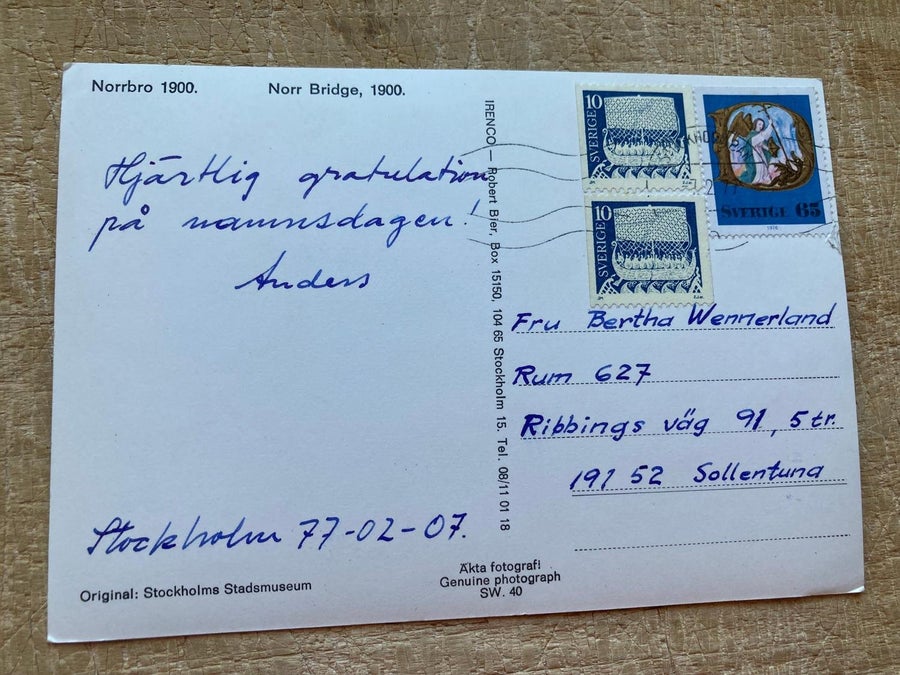 Norrbro 1900. Norr Bridge, 1900.
Hjärtlig gratulation
på namnsdagen!
Anders
Stockholm 77-02-07.
Original: Stockholms Stadsmuseum
IRENCO — Robert Bjer, Box 15150, 104 65 Stockholm 15. Tel. 08/11 01 18
Äkta fotografi
Genuine photograph
SW. 40
SVERIGE 10
SVERIGE 10
SVERIGE 65
1976
Fru Bertha Wennerland
Rum 627
Ribbings väg 91, 5 tr.
191 52 Sollentuna